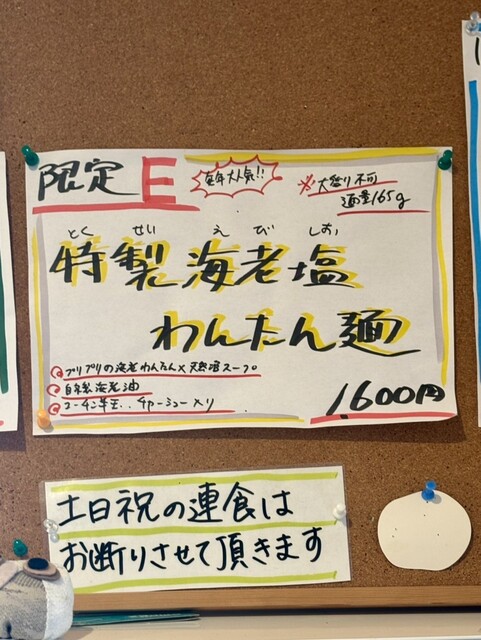 限定 E
毎年大人気!!
※大盛り不可
麺量165g
とく せい え び しお
特製海老塩
わんたん麺
プリプリの海老わんたん×天然塩スープ
自家製海老油
チャーシュー入り
1,600円
土日祝の連食は
お断りさせて頂きます